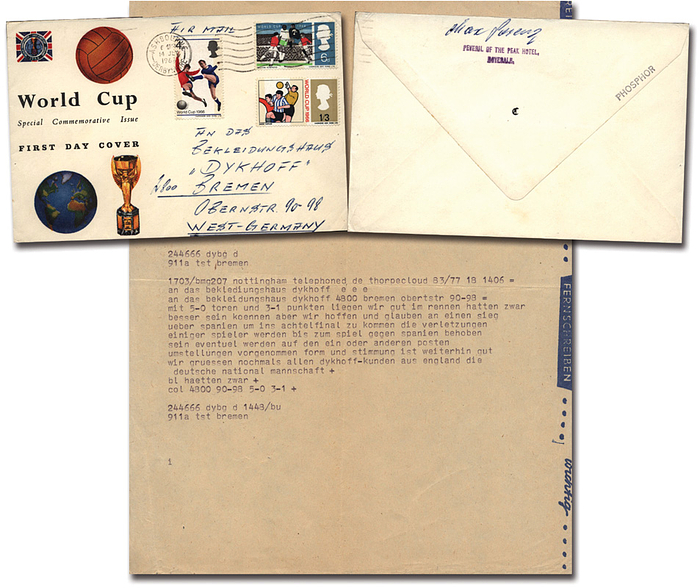 AIR MAIL
World Cup
Special Commemorative Issue
FIRST DAY COVER
World Cup 1966
WORLD CUP 1966
1/3
AN DAS
BEKLEIDUNGSHAUS
"DYKHOFF"
2800 BREMEN
OBERNSTR. 90-98
WEST-GERMANY
Max Lorenz
PEVERAL OF THE PEAK HOTEL,
DOVEDALE.
PHOSPHOR
244666 dybg d
911a tst bremen
1703/bmg207 nottingham telephoned de thorpecloud 83/77 18 1406 =
an das bekledingshaus dykhoff e e e
an das bekleidungshaus dykhoff 4800 bremen obertstr 90-98 =
mit 5-0 toren und 3-1 punkten liegen wir gut im rennen hatten zwar
besser sein koennen aber wir hoffen und glauben an einen sieg
ueber spanien um ins achtelfinal zu kommen die verletzungen
einiger spieler werden bis zum spiel gegen spanien behoben
sein eventuel werden auf den ein oder anderen posten
umstellungen vorgenommen form und stimmung ist weiterhin gut
wir gruessen nochmals allen dykhoff-kunden aus england die
deutsche national mannschaft +
bl haetten zwar +
col 4800 90-98 5-0 3-1 +
244666 dybg d 1448/bu
911a tst bremen
1
FERNSCHREIBEN
wichtig